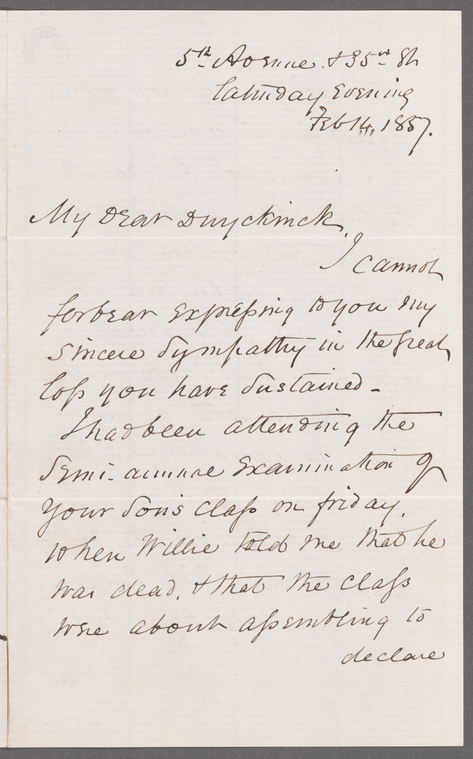 5th Avenue & 35th St
Saturday Evening
Feb 14, 1857.
My Dear Duyckinck,
I cannot
forbear expressing to you my
sincere sympathy in the great
loss you have sustained -
I had been attending the
Semi-annual Examination of
your son's class on friday,
when Willie told me that he
was dead, & that the class
were about assembling to
declare